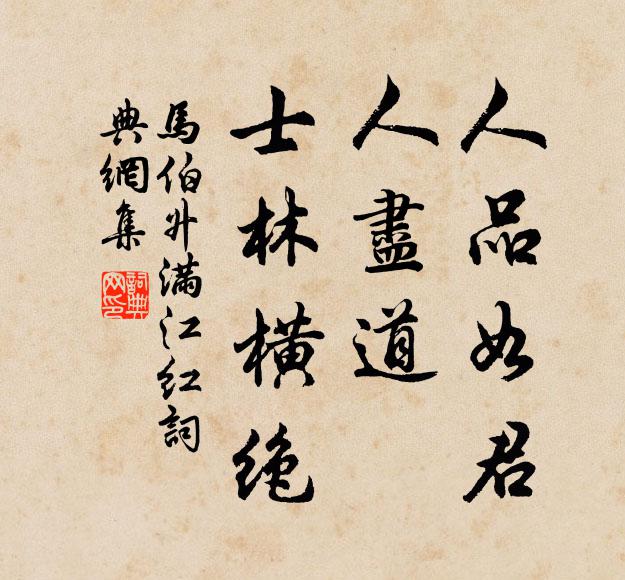 人品如君
人盡道
士林橫絶
馬伯升滿江紅詞
典網集
詞典
网印